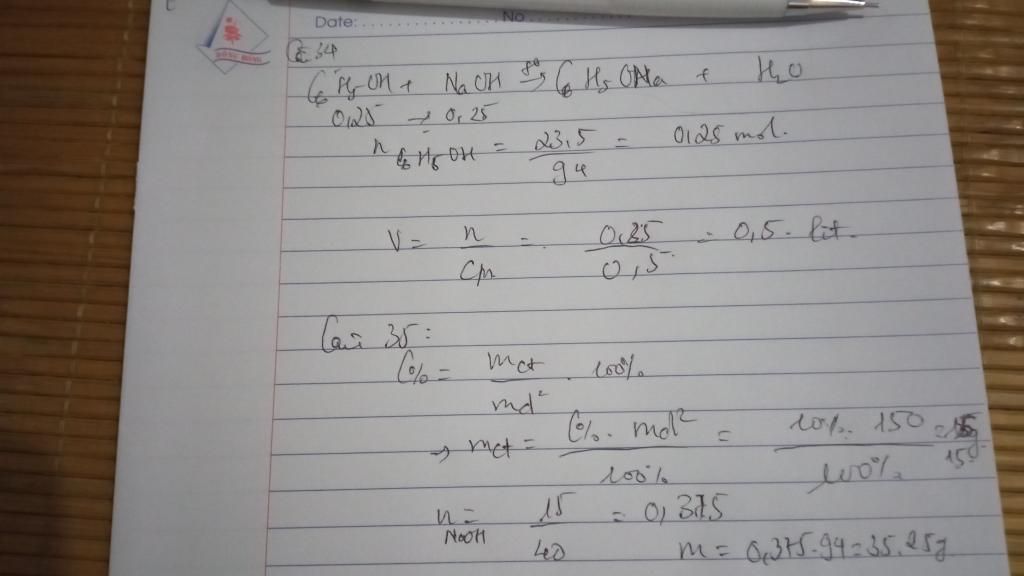 Date: No
Câu 34
C6H5OH + NaOH t° → C6H5ONa + H2O
0,25 → 0,25
n C6H5OH = 23,5 / 94 = 0,25 mol.
V = n / CM = 0,25 / 0,5 = 0,5 lít.
Câu 35:
C% = mct / md² . 100%
→ mct = C% . md² / 100% = 10% . 150 / 100% = 15g
n NaOH = 15 / 40 = 0,375
m = 0,375.94 = 35.25g